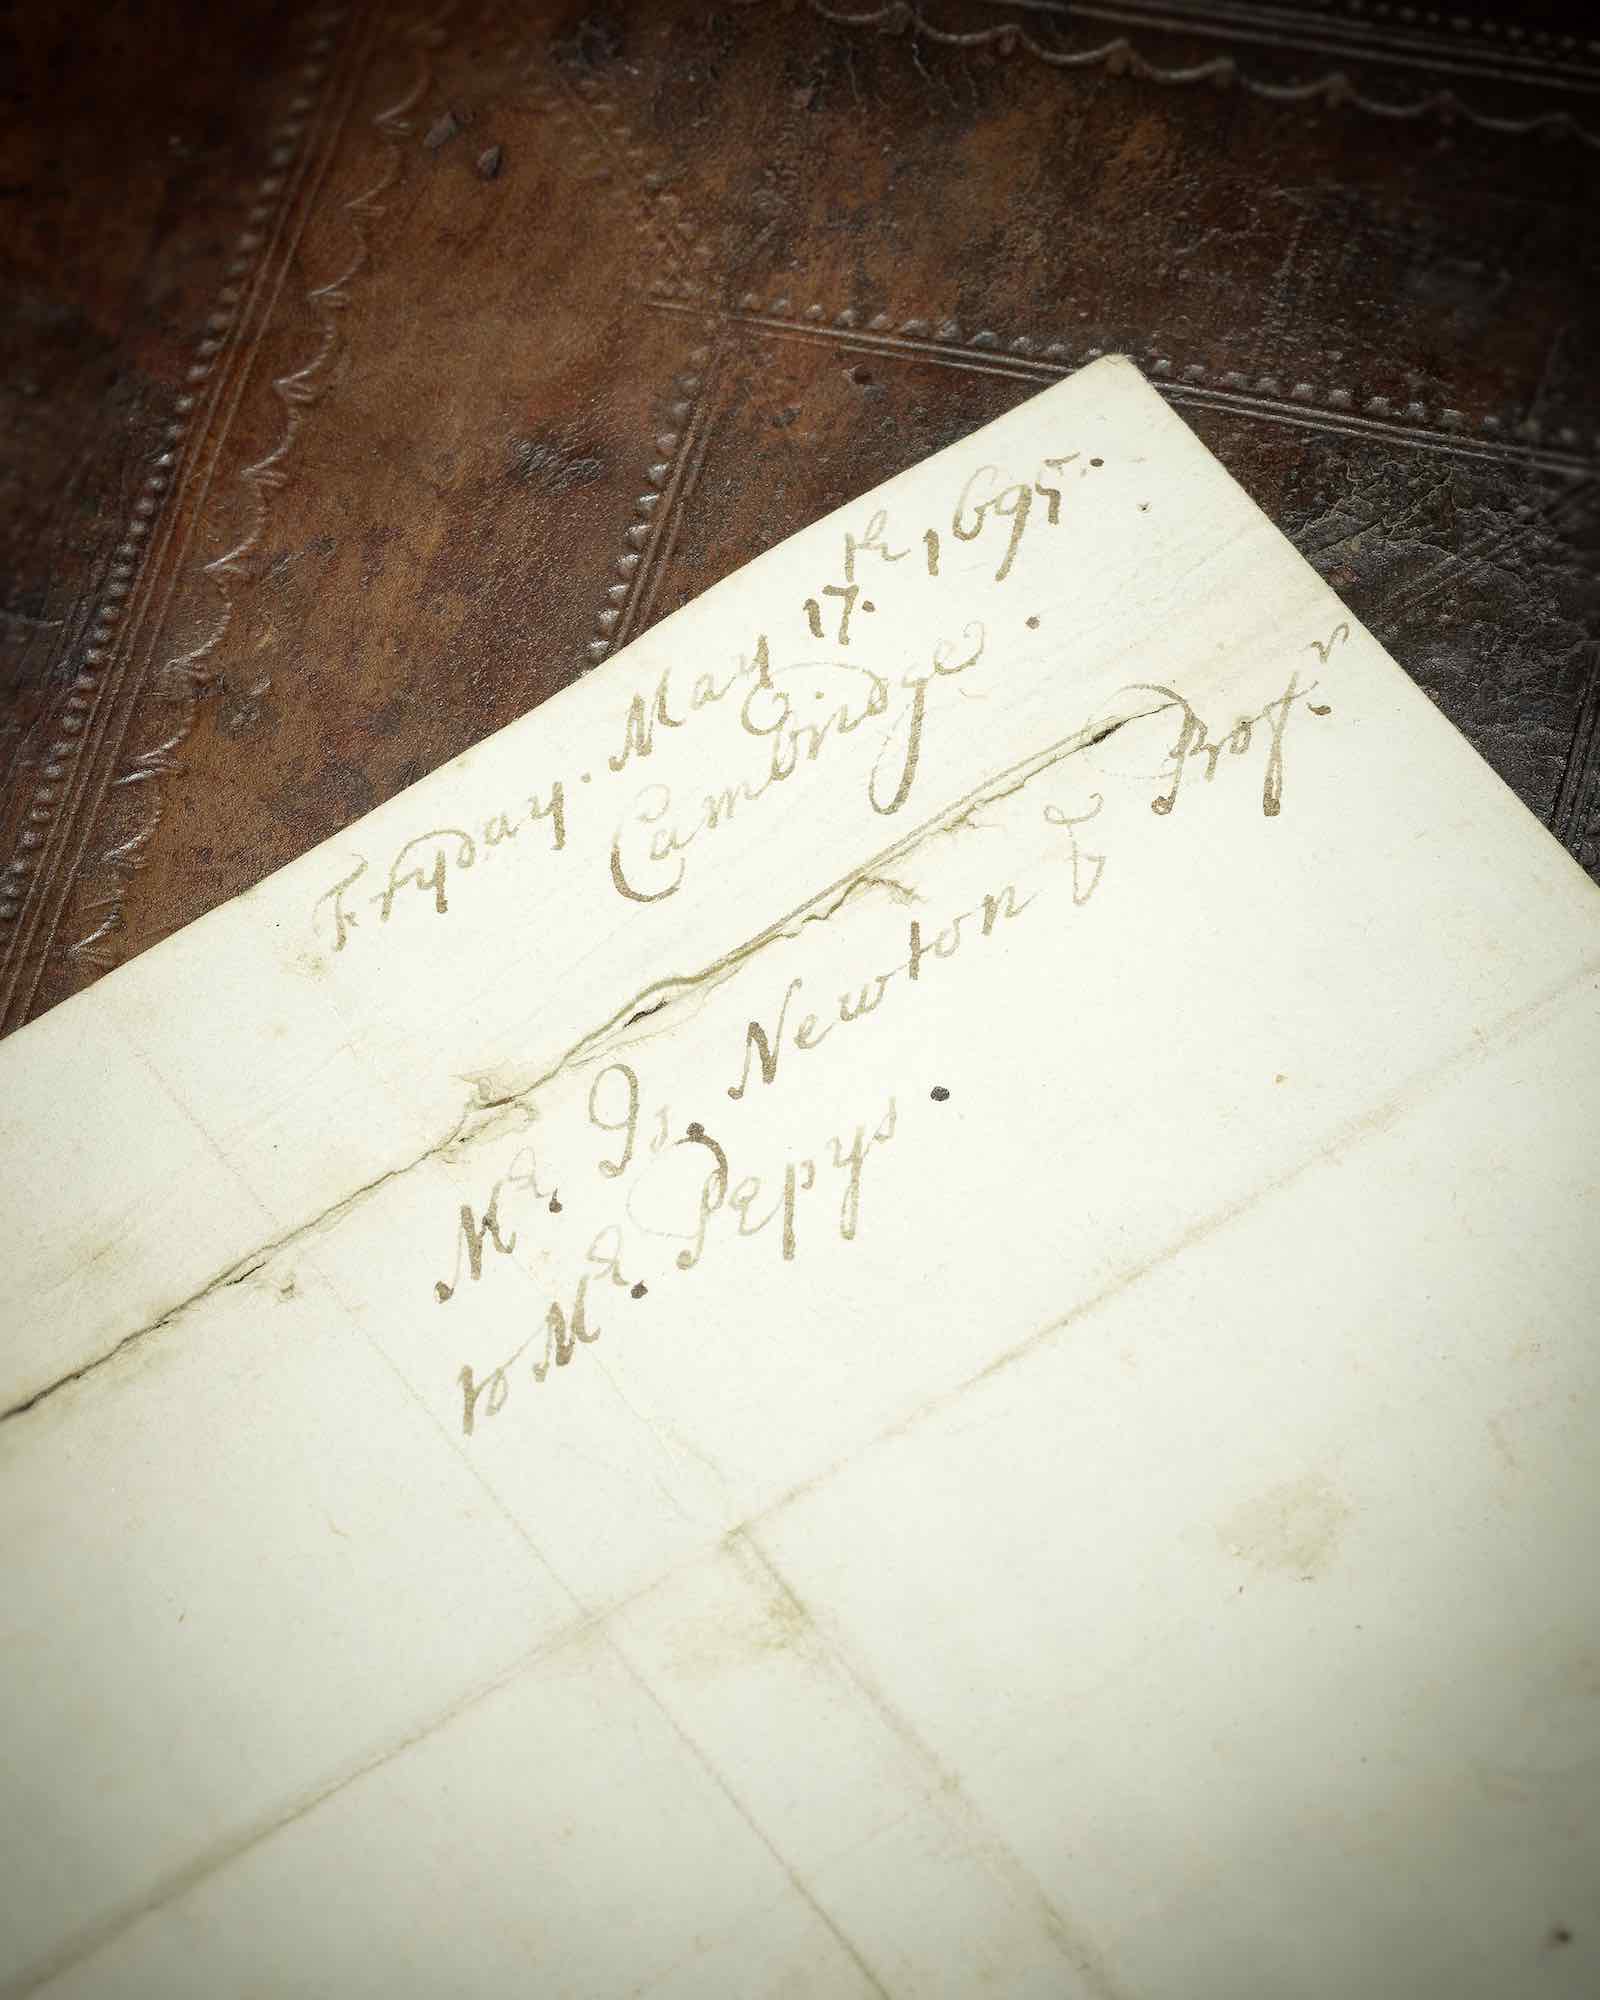 Fryday. May 17.th 1695.
Cambridge.
Mr. Is. Newton ye Profr.
to Mr. Pepys.